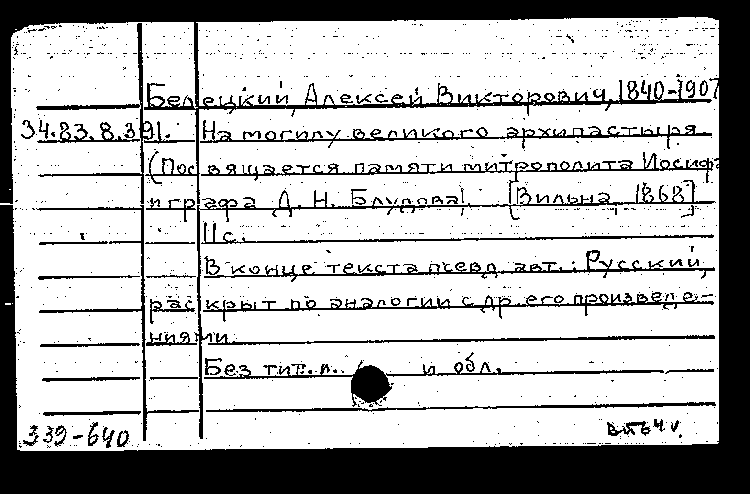 Белецкий, Алексей Викторович, 1840-1907
34.83.8.391. На могилу великого архипастыря
(Посвящается памяти митрополита Иосифа
и графа Д. Н. Блудова). [Вильна, 1868]
11с.
В конце текста псевд. авт.: Русский,
раскрыт по аналогии с др. его произведе-
ниями.
Без тит. л. и обл.
339-640